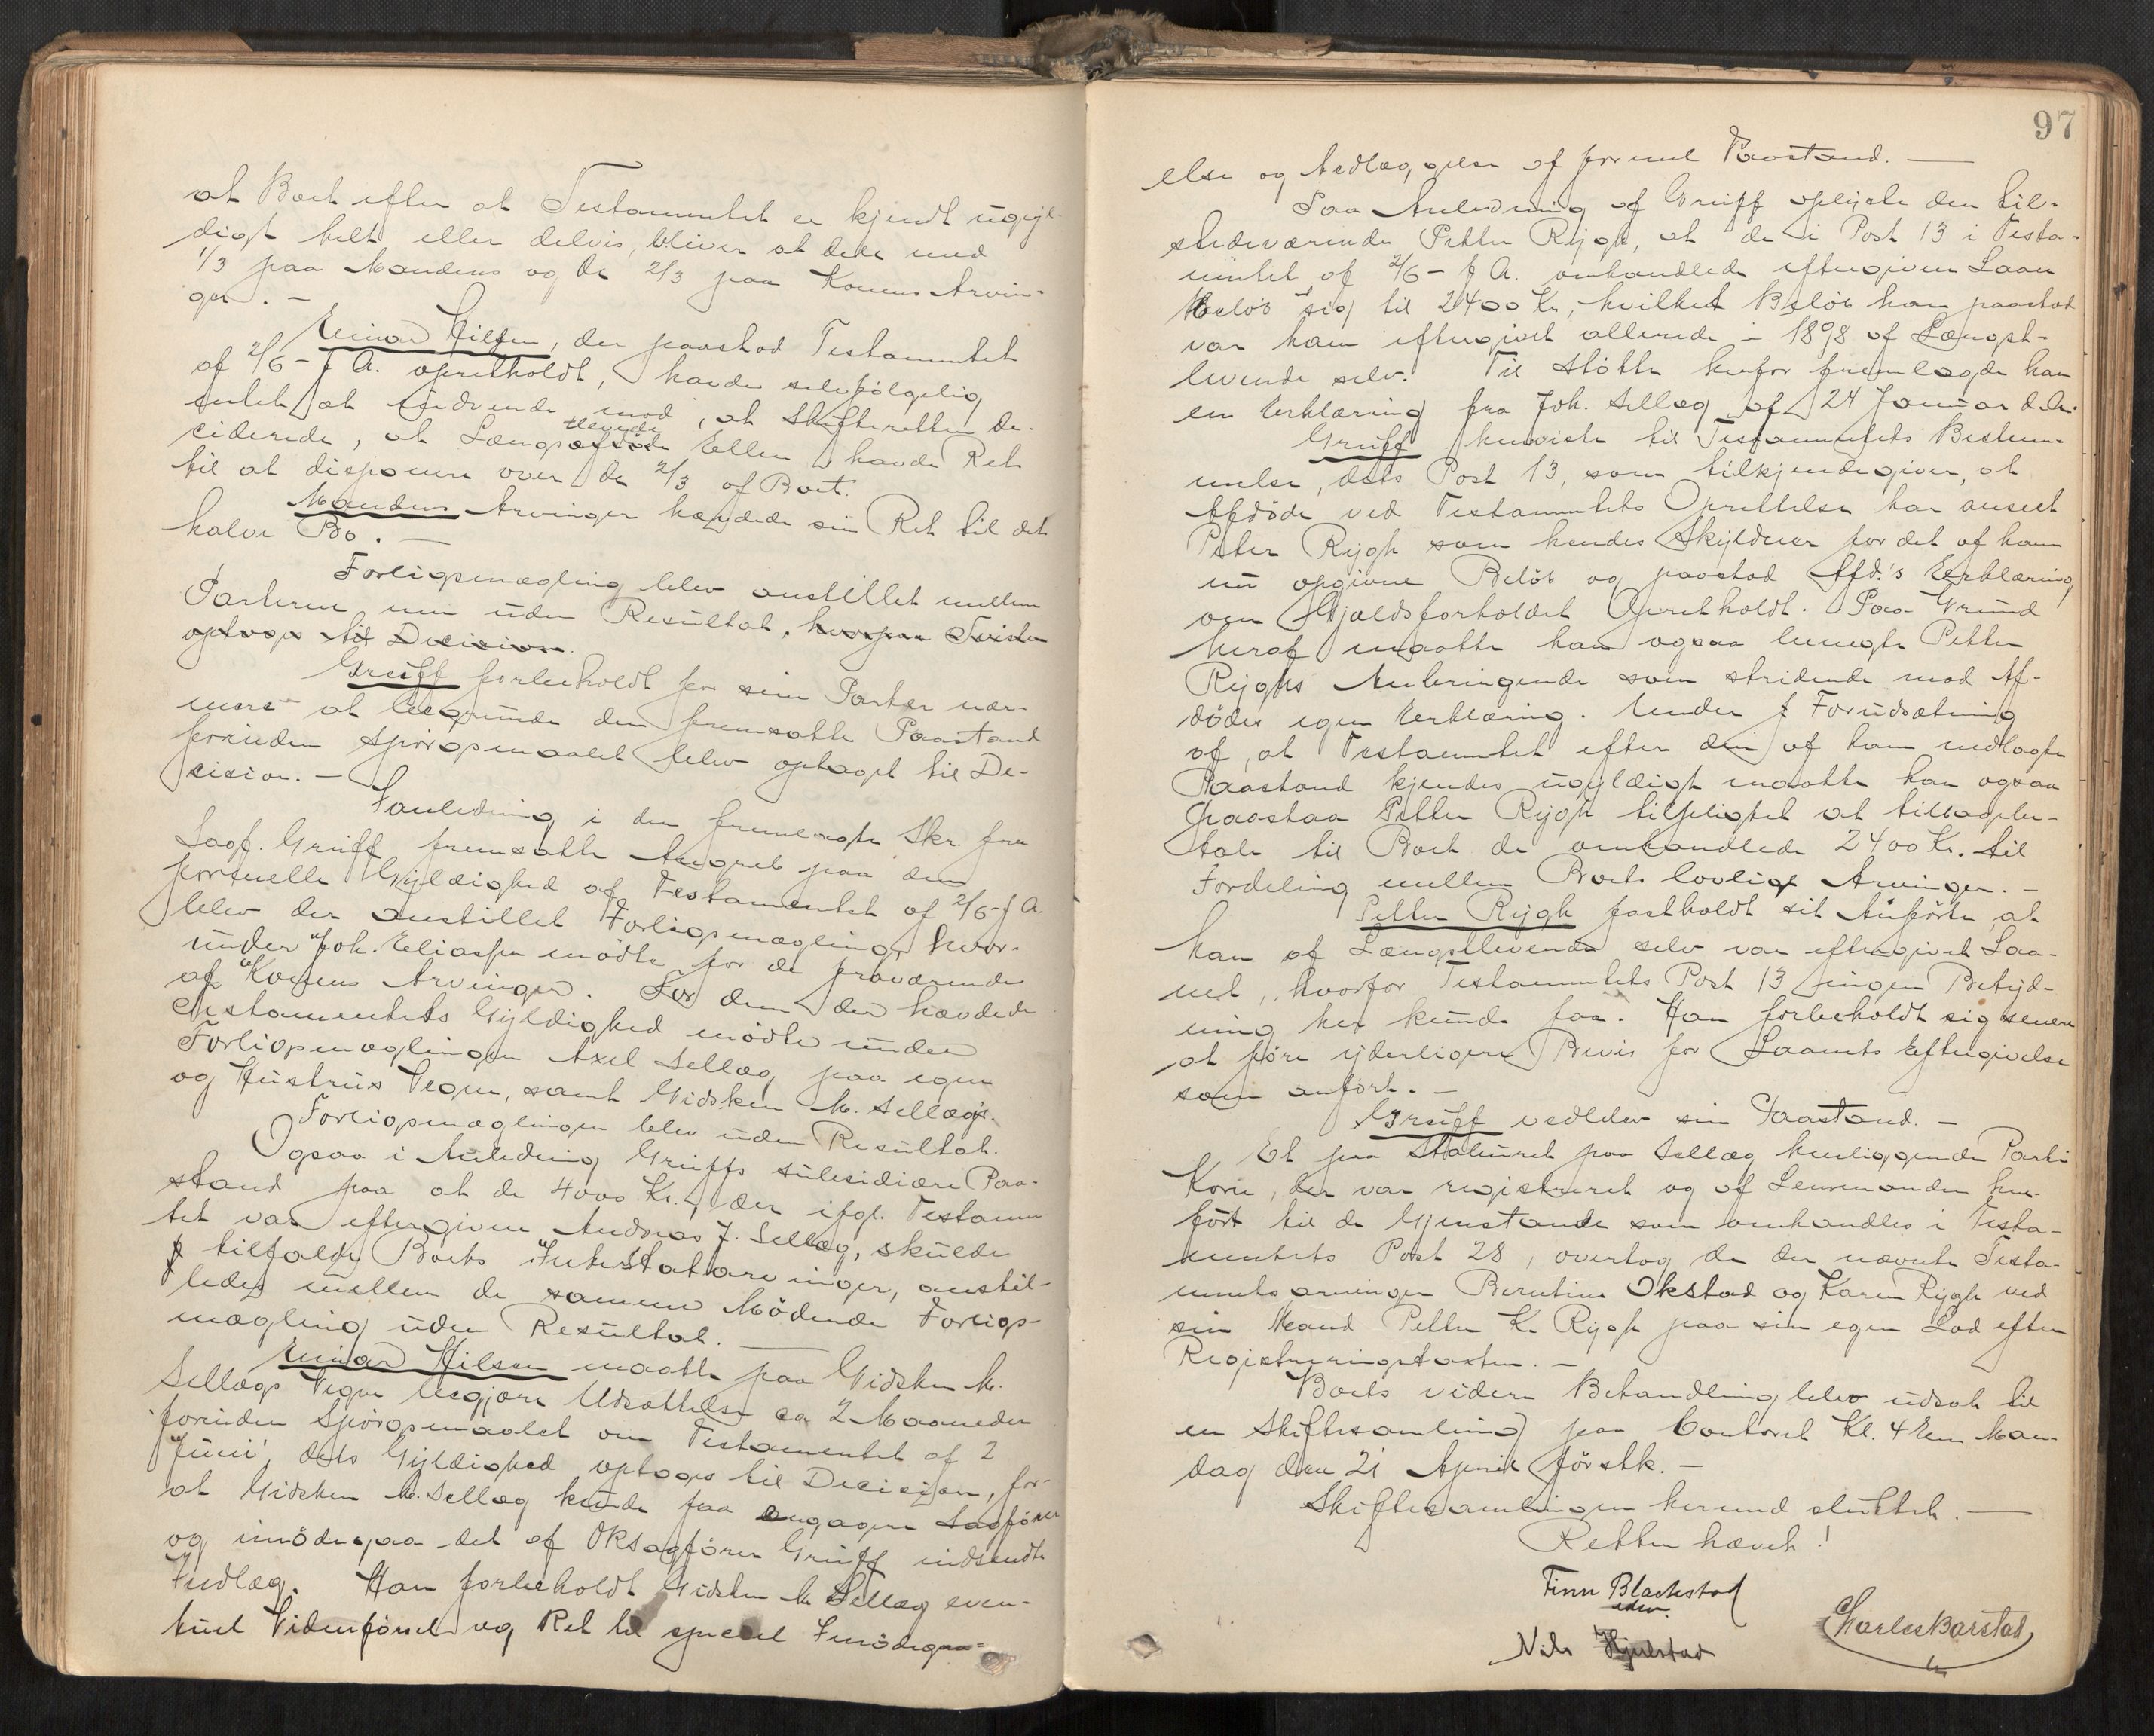 at Boet efter at Testamentet er kjendt ugyl-
digt helt eller delvis, bliver at dele med
1/3 paa Mandens og de 2/3 paa Konens Arvin-
ger. -
Einar Hilsen, der paastod Testamentet
af 2/6 - f A. opretholdt, havde selvfølgelig
intet at indvende mod, at Skifteretten de-
ciderede, at Længstlevende Ellen havde Ret
til at disponere over de 2/3 af Boet.
Mandens Arvinger hævdede sin Ret til det
halve Bo. -
Forligsmægling blev anstillet mellem
Parterne men uden Resultat, hvorpaa Tvisten
optoges til Decision.
Gruff forbeholdt for sine Parter nær-
mere at begrunde den fremsatte Paastand
forinden Spørgsmaalet blev optaget til De-
cision. -
I anledning i den fremlagte Skr. fra
Sagf. Gruff fremsatte Angreb paa den
formelle Gyldighed af Testamentet af 2/6 - f A.
blev der anstillet Forligsmægling, hvor-
under Joh. Eliassen mødte for de fraværende
af Konens Arvinger. For dem der hævdede
Testamentets Gyldighed mødte under
Forligsmæglingen Axel Sellæg paa egen
og Hustrus Vegne, samt Gidsken M. Sellæg.
Forligsmæglingen blev uden Resultat.
Ogsaa i Anledning Gruffs subsidiære Paa-
stand paa at de 4000 Kr., der ifgl. Testamen
tet var eftergivne Andreas J. Sellæg, skulde
tilfalde Boets Intestatarvinger, anstil-
ledes mellem de samme Mødende Forligs-
mægling uden Resultat.
Einar Hilsen maatte paa Gidsken M.
Sellægs Vegne begjære Udsættelse ca 2 Maaneder
forinden Spørgsmaalet om Testamentet af 2
Juni, dets Gyldighed optages til Decision, for
at Gidsken M. Sellæg kunde faa engagere Sagfører
og imødegaa det af OKsagfører Gruff indsendte
Indlæg. Han forbeholdt Gidsken M. Sellæg even-
tuel Vidneførsel og Ret til speciel Imødegaa-
97
else og Nedlæggelse af formel Paastand. -
Paa Anledning af Gruff oplyste den til-
stedeværende Petter Rygh, at de i Post 13 i Testa-
mentet af 2/6 - f A. omhandlede eftergivne Laan
beløb sig til 2400 Kr., hvilket Beløb han paastod
var ham eftergivet allerede i 1898 af Længst-
levende selv. Til Støtte herfor fremlagde han
en Erklæring fra Joh. Sellæg af 24 Januar d.A.
Gruff henviste til Testamentets Bestem-
melse, dets Post 13, som tilkjendegiver, at
Afdøde ved Testamentets Oprettelse har anseet
Peter Rygh som hendes Skyldner for det af ham
nu opgivne Beløb og paastod Afd.'s Erklæring
om Gjældsforholdet Opretholdt. Paa Grund
heraf maatte han ogsaa benegte Petter
Ryghs Anbringende som stridende mod Af-
dødes egen Erklæring. Under Forudsætning
af, at Testamentet efter den af ham nedlagte
Paastand kjendes ugyldigt maatte han ogsaa
paastaa Petter Rygh tilpligtet at tilbagebe-
tale til Boet de omhandlede 2400 Kr. til
Fordeling mellem Boets lovlige Arvinger. -
Petter Rygh fastholdt sit Anførte, at
han af Længstlevende selv var eftergivet Laa-
net, hvorfor Testamentets Post 13 ingen Betyd-
ning her kunde faa. Han forbeholdt sig senere
at føre yderligere Bevis for Laanets Eftergivelse
som anført. -
Gruff vedblev sin Paastand. -
Et paa Staburet paa Sellæg henliggende Parti
Korn, der var registreret og af Lensmanden hen-
ført til de Gjenstande som omhandles i Testa-
mentets Post 28, overtog de der nævnte Testa-
mentsarvinger Berntine Okstad og Karen Rygh ved
sin Mand Petter K. Rygh paa sin egen Lod efter
Registreringstaxten. -
Boets videre Behandling blev udsat til
en Skiftesamling paa Contoret Kl. 4 Em. Man-
dag den 21 April førstk. -
Skiftesamlingen hermed sluttet. -
Retten hævet!
Finn Blackstad
edsv.
Charles Barstad
Nils Hjulstad